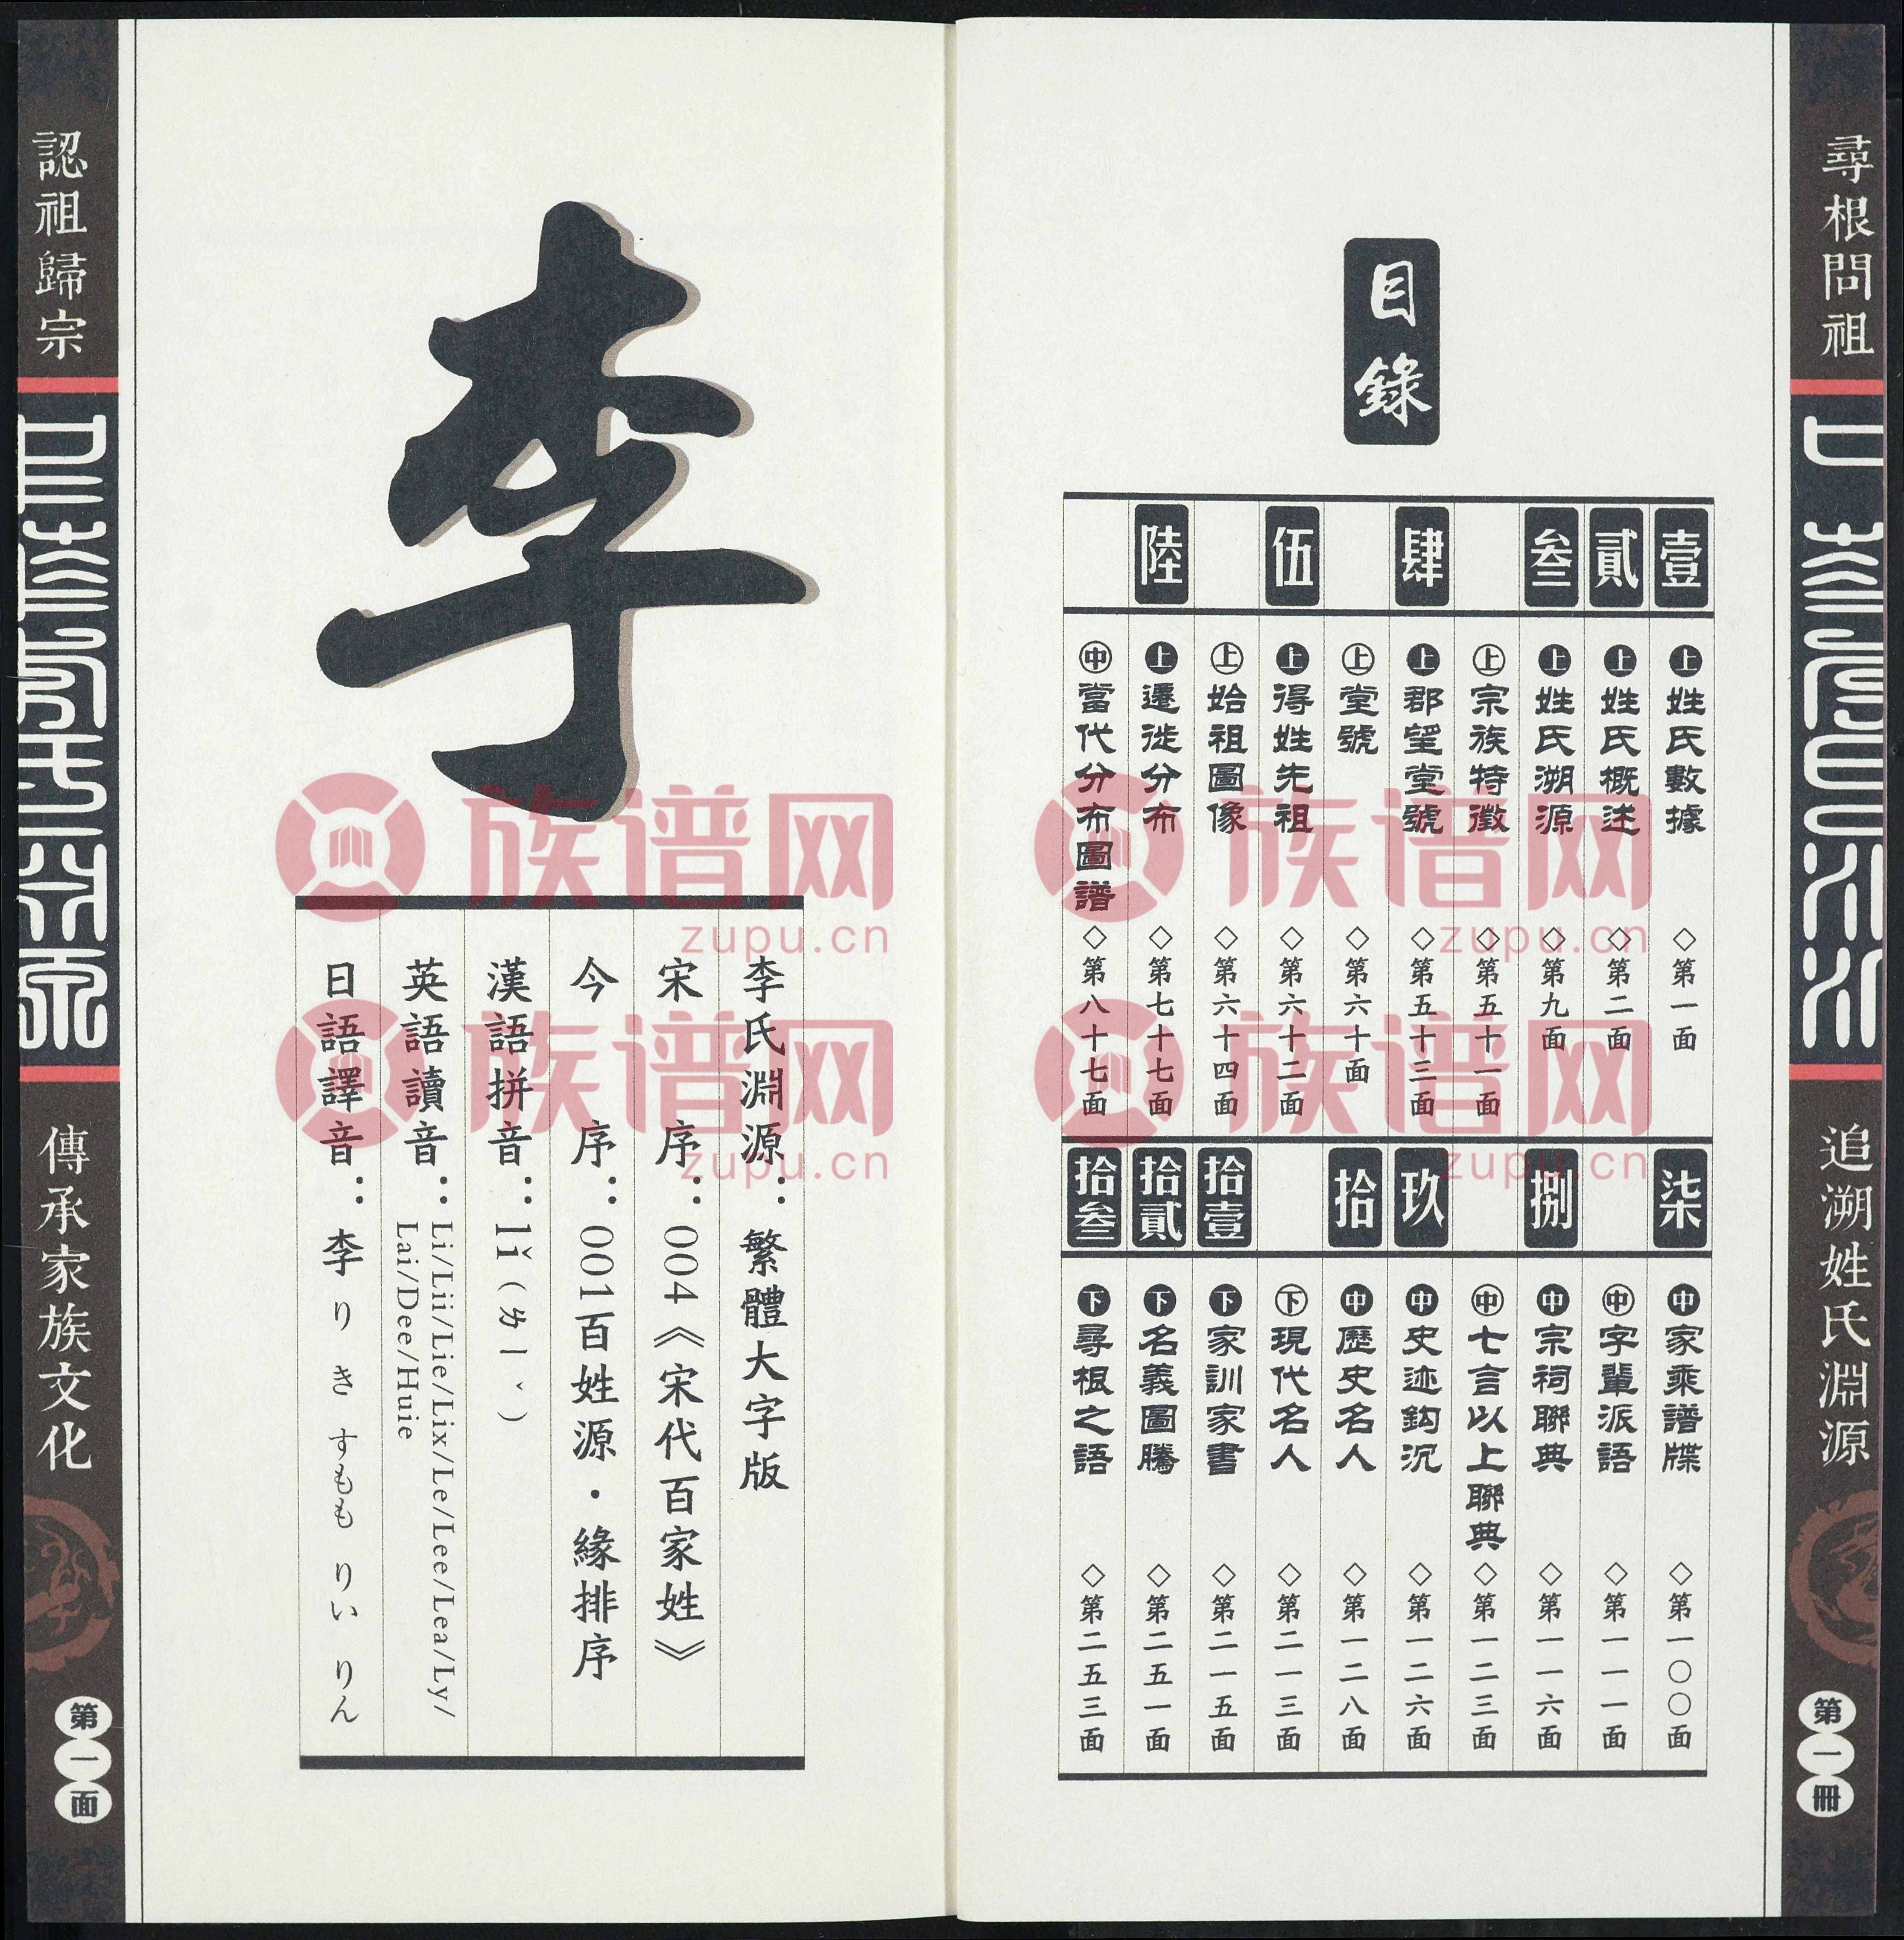 尋根問祖
追溯姓氏淵源
第一冊
目錄
壹
上 姓氏數據 ◇第一面
貳
上 姓氏概述 ◇第二面
叁
上 姓氏溯源 ◇第九面
上 宗族特徵 ◇第五十一面
肆
上 郡望堂號 ◇第五十三面
上 堂號 ◇第六十面
伍
上 得姓先祖 ◇第六十二面
上 始祖圖像 ◇第六十四面
陸
上 遷徙分布 ◇第七十七面
中 當代分布圖譜 ◇第八十七面
柒
中 家乘譜牒 ◇第一〇〇面
中 字輩派語 ◇第一一一面
捌
中 宗祠聯典 ◇第一一六面
中 七言以上聯典 ◇第一二三面
玖
中 史迹鈎沉 ◇第一二六面
拾
中 歷史名人 ◇第一二八面
下 現代名人 ◇第二一三面
拾壹
下 家訓家書 ◇第二一五面
拾貳
下 名義圖騰 ◇第二五一面
拾叁
下 尋根之語 ◇第二五三面
李
李氏淵源：繁體大字版
宋序：004《宋代百家姓》
今序：001百姓源·緣排序
漢語拼音：lǐ（ㄌㄧˇ）
英語讀音：Li/Lii/Lie/Lix/Le/Lee/Lea/Ly/
Lai/Dee/Huie
日語譯音：李 り き すもも りい りん
認祖歸宗
傳承家族文化
第一面
族谱网
zupu.cn
族谱网
zupu.cn
族谱网
zupu.cn
族谱网
zupu.cn